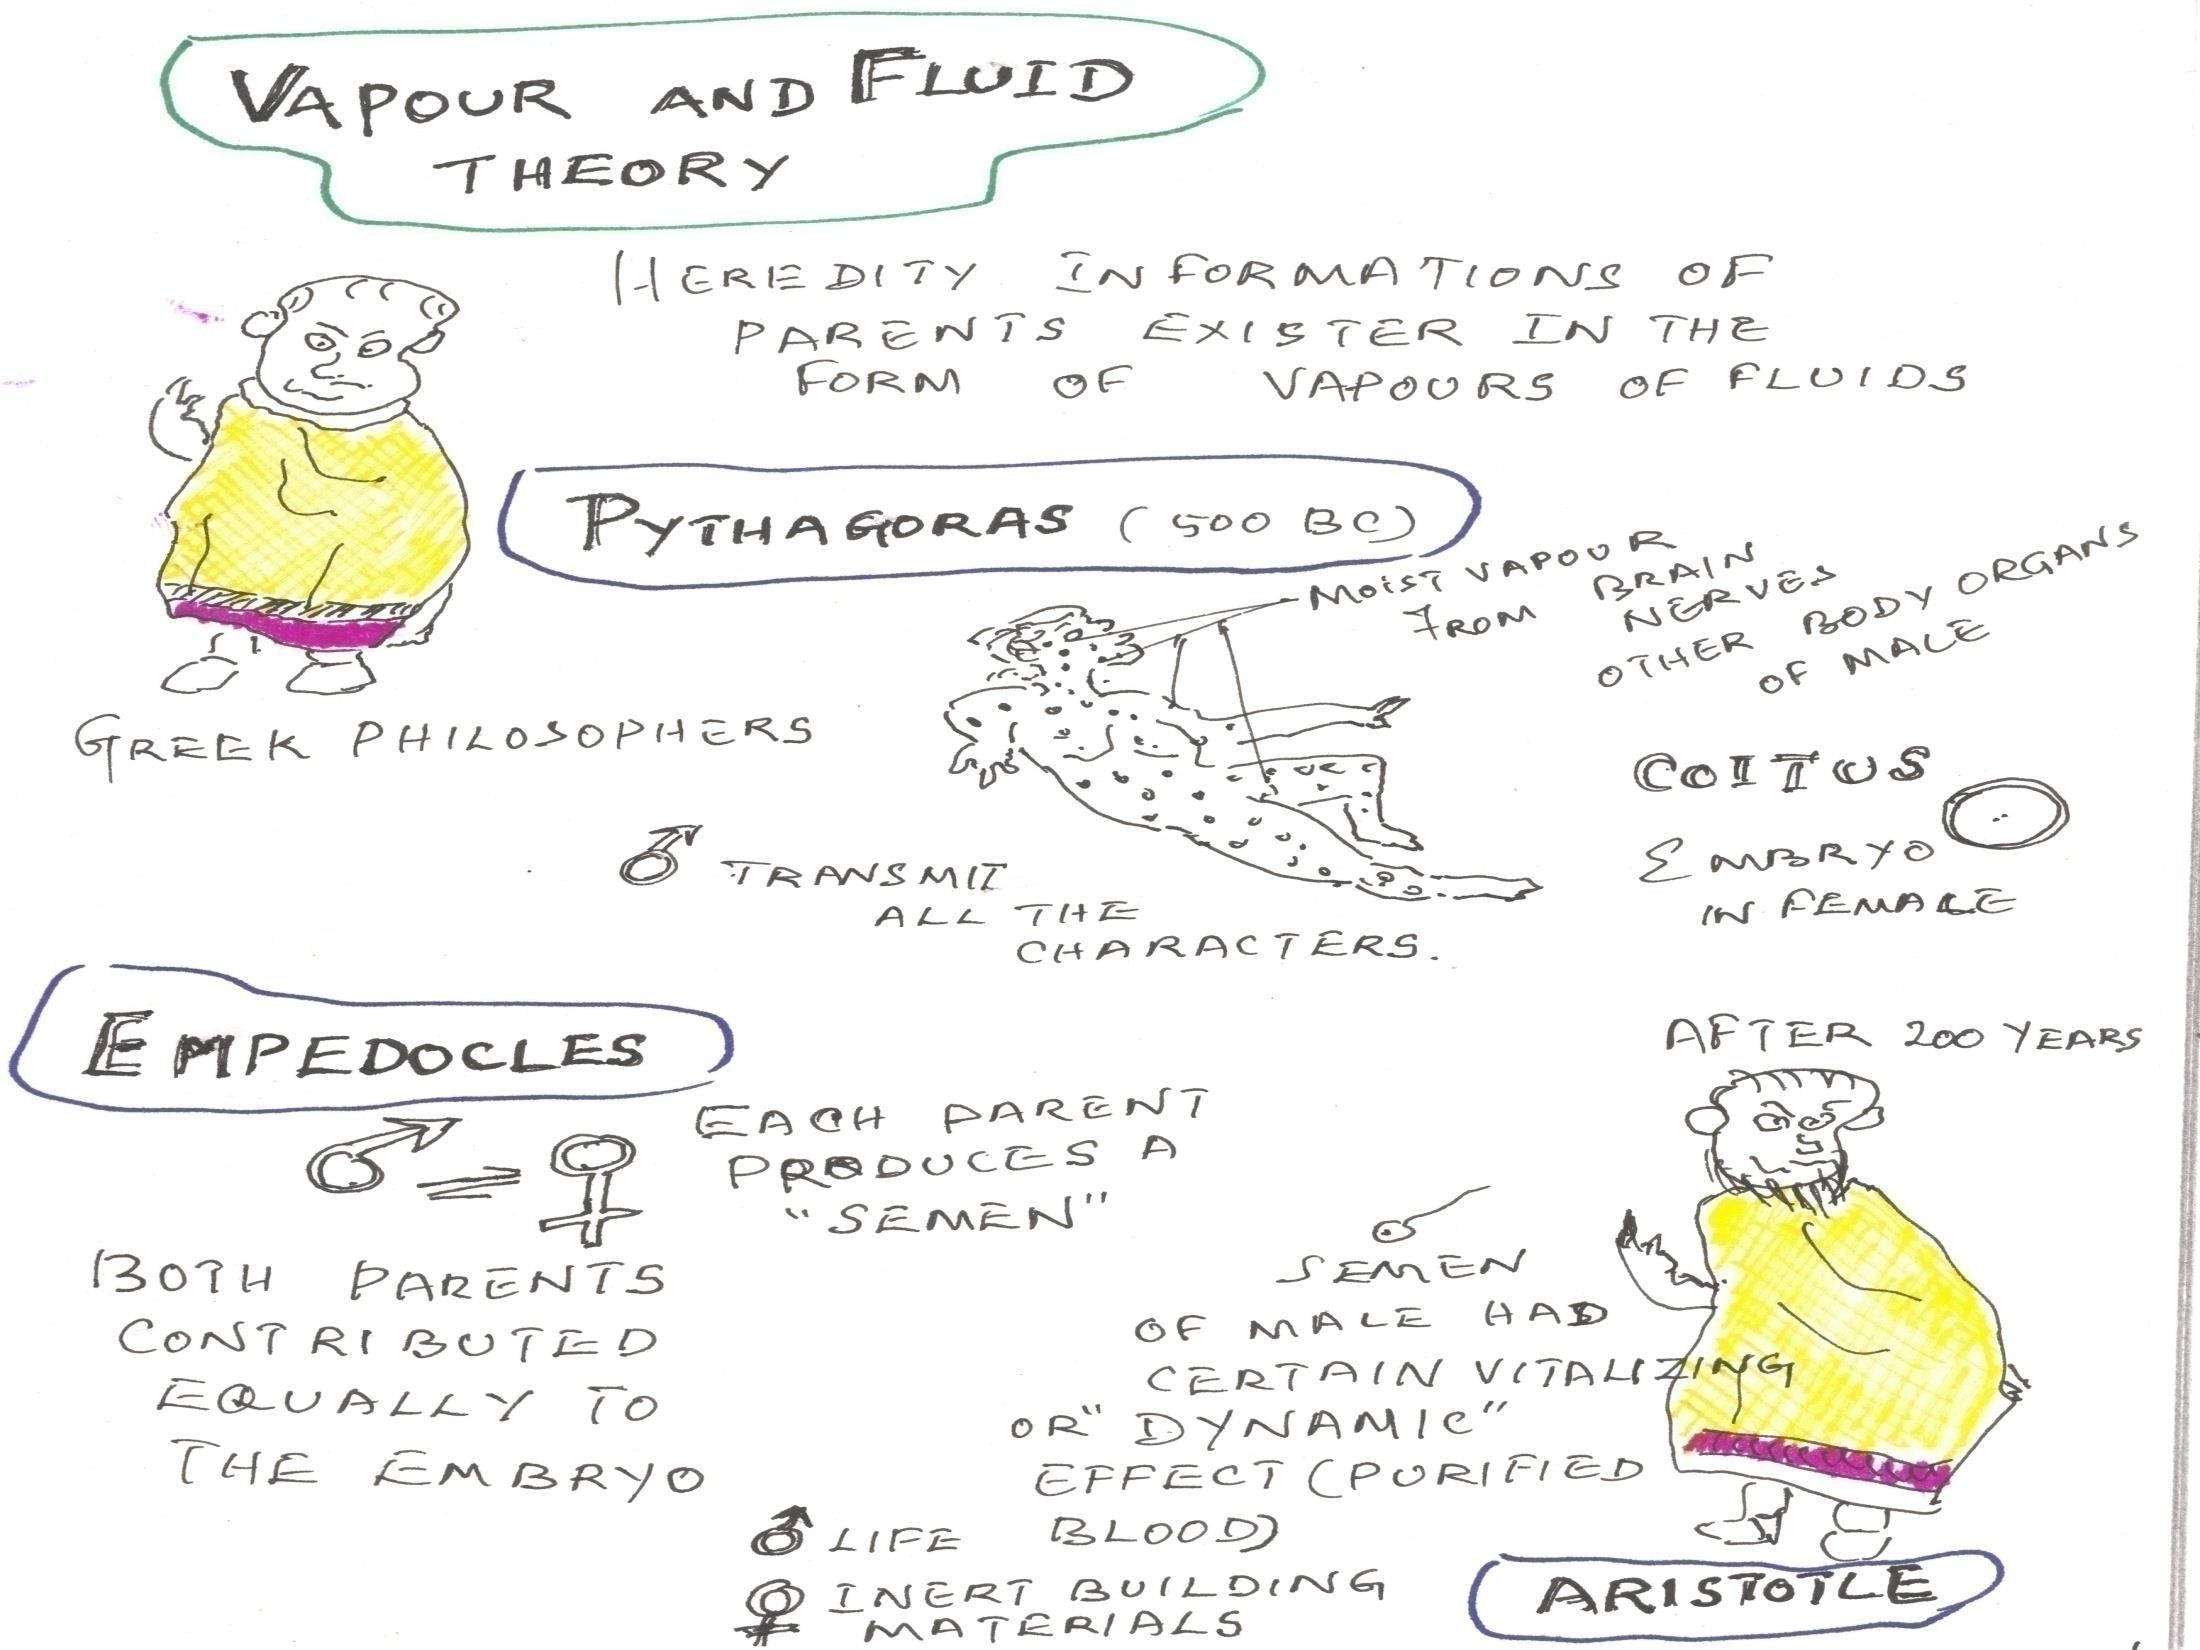 VAPOUR AND FLUID
THEORY
HEREDITY INFORMATIONS OF
PARENTS EXISTER IN THE
FORM OF VAPOURS OF FLUIDS
PYTHAGORAS (500 BC)
MOIST VAPOUR
FROM BRAIN
NERVES
OTHER BODY ORGANS
OF MALE
GREEK PHILOSOPHERS
COITUS
EMBRYO
IN FEMALE
♂ TRANSMIT
ALL THE
CHARACTERS.
EMPEDOCLES
♂ = ♀
EACH PARENT
PRODUCES A
"SEMEN"
BOTH PARENTS
CONTRIBUTED
EQUALLY TO
THE EMBRYO
AFTER 200 YEARS
SEMEN
OF MALE HAD
CERTAIN VITALIZING
OR "DYNAMIC"
EFFECT (PURIFIED
BLOOD)
♂ LIFE
♀ INERT BUILDING
MATERIALS
ARISTOTLE